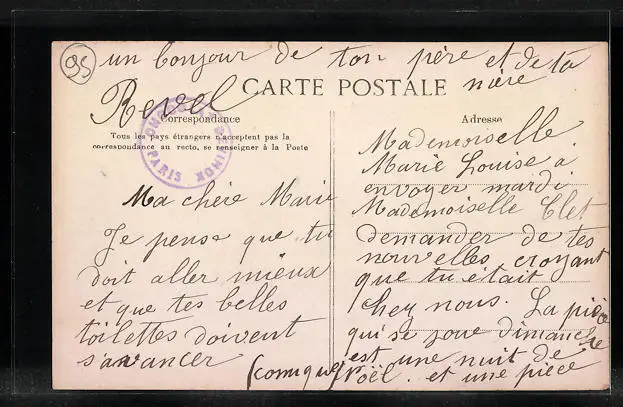 95
un bonjour de ton père et de ta
mère
Revel
CARTE POSTALE
Correspondance
Tous les pays étrangers n'acceptent pas la
correspondance au recto, se renseigner à la Poste
PARIS
Ma chère Marie
Je pense que tu
doit aller mieux
et que tes belles
toilettes doivent
s'avancer
Adresse
Mademoiselle
Marie Louise a
envoyer mardi
Mademoiselle Clet
demander de tes
nouvelles croyant
que tu était
chez nous. La pièce
qui se joue dimanche
est une nuit de
Noël. et une pièce
(comique)